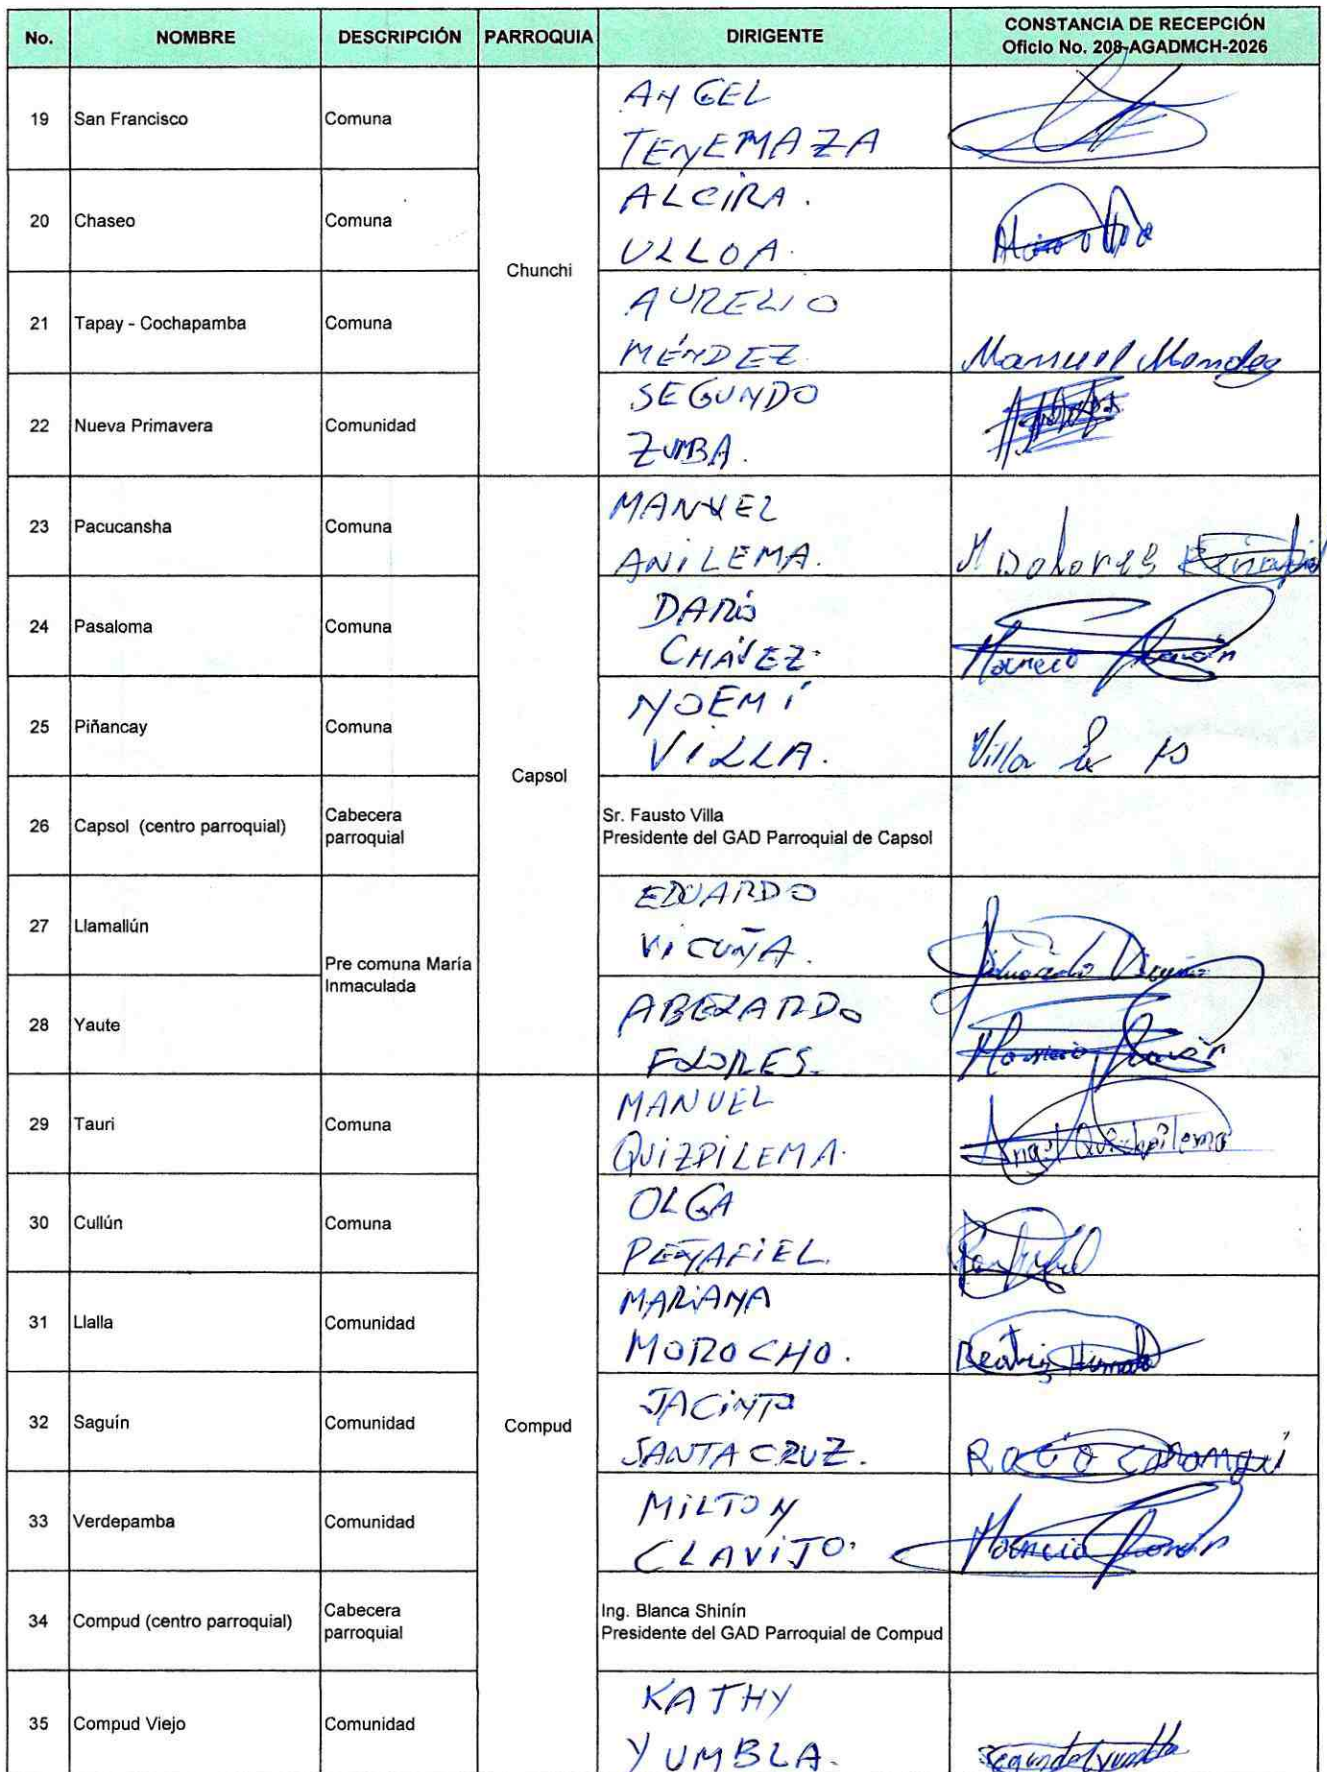 No. NOMBRE DESCRIPCIÓN PARROQUIA DIRIGENTE CONSTANCIA DE RECEPCIÓN
Oficio No. 208-AGADMCH-2026
19 San Francisco Comuna Chunchi ANGEL
TENEMAZA
20 Chaseo Comuna ALCIRA.
ULLOA.
21 Tapay - Cochapamba Comuna AURELIO
MÉNDEZ Manuel Mendez
22 Nueva Primavera Comunidad SEGUNDO
ZUMBA.
23 Pacucansha Comuna Capsol MANUEL
ANILEMA. M Dolores
24 Pasaloma Comuna DARÍO
CHÁVEZ.
25 Piñancay Comuna NOEMÍ
VILLA. Villa
26 Capsol (centro parroquial) Cabecera
parroquial Sr. Fausto Villa
Presidente del GAD Parroquial de Capsol
27 Llamallún Pre comuna María
Inmaculada EDUARDO
VICUÑA. Eduardo Vicuña
28 Yaute ABELARDO
FLORES.
29 Tauri Comuna Compud MANUEL
QUIZPILEMA. Angel Quizhpilema
30 Cullún Comuna OLGA
PEÑAFIEL.
31 Llalla Comunidad MARIANA
MOROCHO. Beatriz
32 Saguín Comunidad JACINTO
SANTACRUZ. Rocío
33 Verdepamba Comunidad MILTON
CLAVIJO.
34 Compud (centro parroquial) Cabecera
parroquial Ing. Blanca Shinín
Presidente del GAD Parroquial de Compud
35 Compud Viejo Comunidad KATHY
YUMBLA.